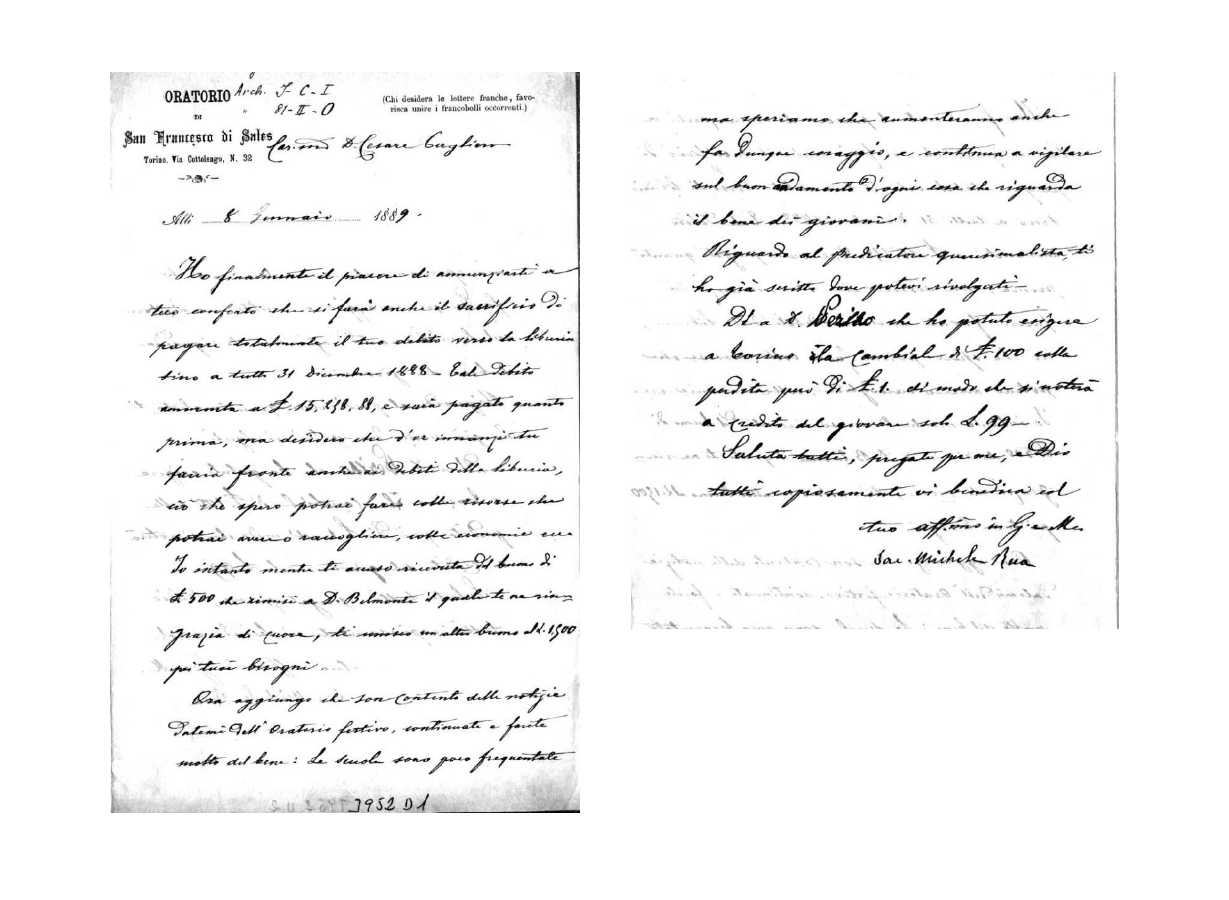 ORATORIO Arch. J-C-I
DI " 81-II-O
San Francesco di Sales
Torino, Via Cottolengo, N. 32
(Chi desidera le lettere franche, favo-
risca unire i francobolli occorrenti.)
Car.mo D. Cesare Cagliero
Alli 8 Gennaio 1889.
Ho finalmente il piacere di annunziarti a
tuo conforto che si farà anche il sacrifizio di
pagare totalmente il tuo debito verso la libreria
sino a tutto 31 Dicembre 1888 - Tal debito
ammonta a £. 15,258,88, e sarà pagato quanto
prima, ma desidero che d'or innanzi tu
faccia fronte anche ai debiti della libreria,
ciò che spero potrai fare colle risorse che
potrai avere o raccogliere, colle economie ecc.
Io intanto mentre ti accuso ricevuta del buono di
£ 500 che rimisi a D. Belmonte il quale te ne rin=
grazia di cuore, ti unisco un altro buono di L. 1500
pei tuoi bisogni -
Ora aggiungo che son contento delle notizie
datemi dell' Oratorio festivo, continuate e farete
molto del bene: Le scuole sono poco frequentate
3952 D1
ma speriamo che aumenteranno anche
fa dunque coraggio, e continua a vigilare
sul buon andamento d'ogni cosa che riguarda
il bene dei giovani.
Riguardo al predicatore quaresimalista ti
ho già scritto dove potevi rivolgerti -
Di' a D. che ho potuto esigere
a Torino la cambial di £. 100 colla
perdita però di £. 1. di modo che si noterà
a credito del giovane solo L. 99 -
Saluta tutti, pregate per me, e Dio
tutti copiosamente vi benedica col
tuo aff.mo in G. e M.
Sac. Michele Rua